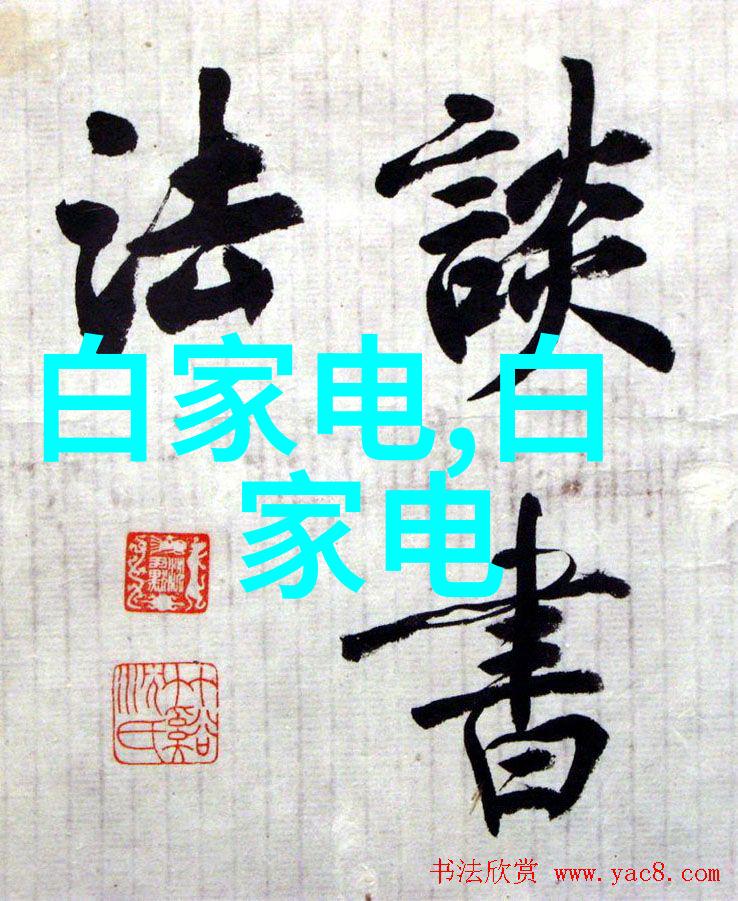 談書
法
白家电,白
家电
书法欣赏 www.yac8.com